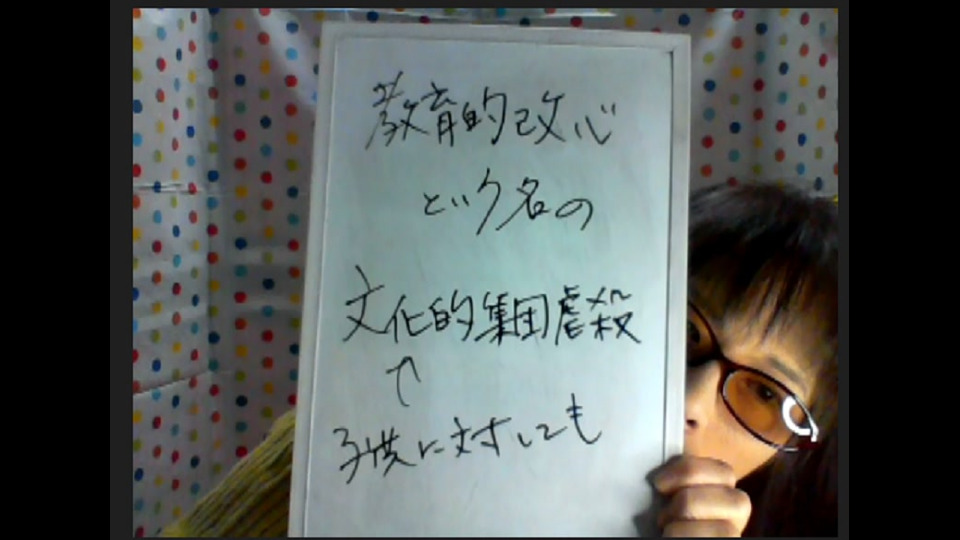 教育的改心
という名の
文化的集団虐殺
↑
子供に対しても